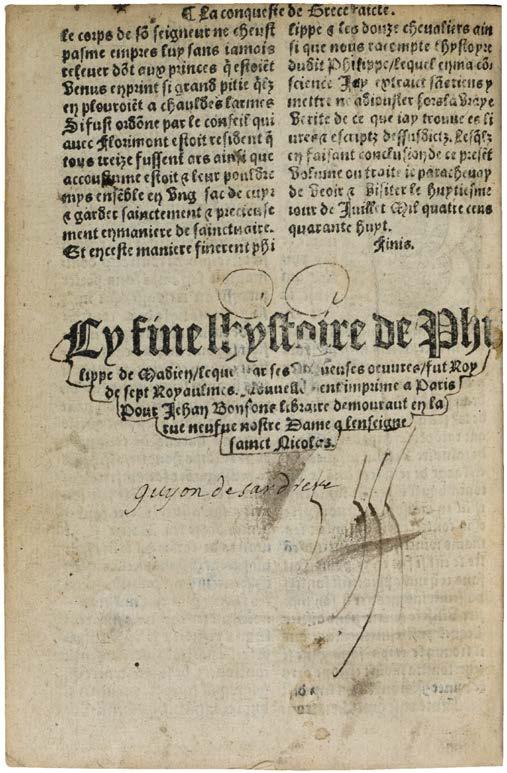 ¶ La conqueste de Grece faicte.
le corps de sõ seigneur ne cheust
pasme empres luy sans iamais
relever dõt aux princes q̃ estoiẽt
venus en print si grand pitie q̃lz
en plouroiẽt a chauldes larmes
Si fust ordõne par le conseil qui
avec Florimont estoit resident q̃
tous treize fussent ars ainsi que
accoustume estoit & leur pouldre
mys ensẽble en ung sac de cuyr
& garder sainctement & precieuse
ment en maniere de sainctuaire.
Et en ceste maniere finerent phi
lippe & les douze chevaliers ain
si que nous racompte thystoyre
dudit Philippe/lequel en ma cõ
science Jay extraict sãs riens y
mettre ne adiouster hors la vraye
verite de ce que iay trouve es li
vres & escriptz dessusdictz. Lesq̃lz
en faisant conclusion de ce presẽt
volume on traite ie parachevay
de veoir & visiter le huytiesme
iour de Juillet Mil quatre cens
quarante huyt.
Finis.
Cy fine lhystoire de Phi
lippe de Madien/leque par ses ueuses oeuvres/fut Roy
de sept Royaulmes. Nouvelle ent imprime a Paris
Pour Jehan Bonfons libraire demourant en la
rue neufue nostre Dame a lenseigne
sainct Nicolas.
guyon de sardiere